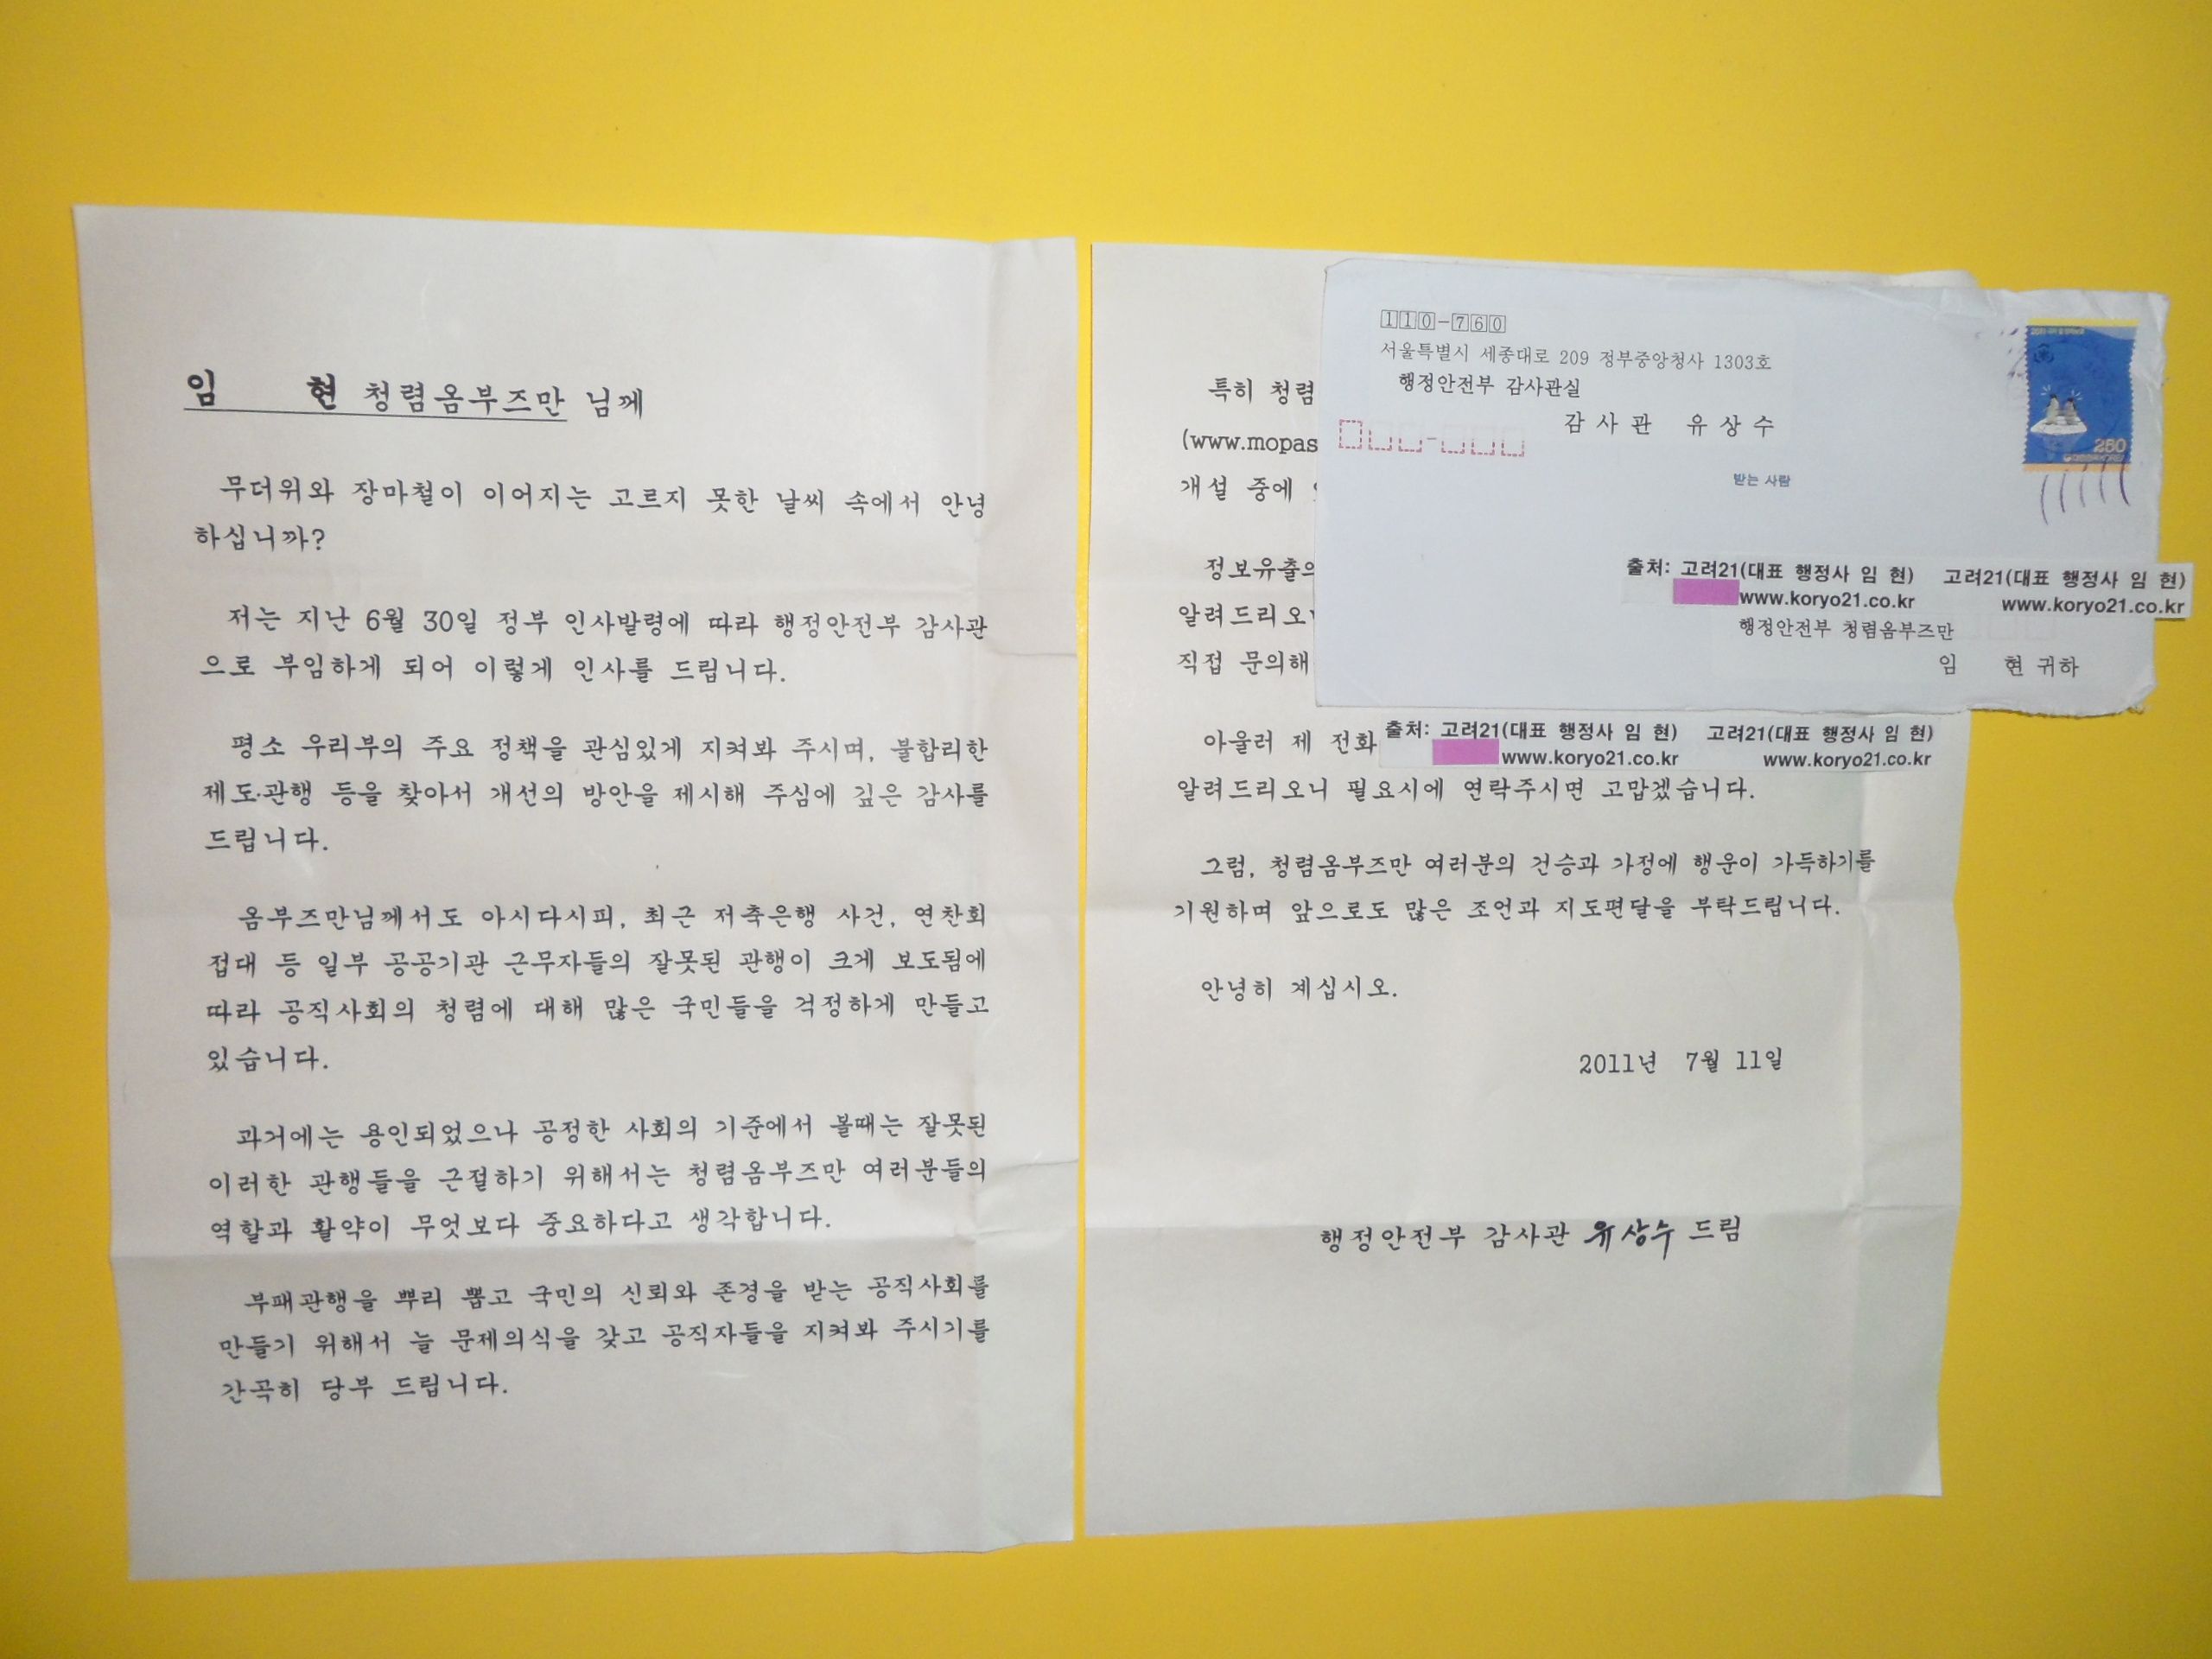 임 현 청렴옴부즈만 님께
무더위와 장마철이 이어지는 고르지 못한 날씨 속에서 안녕
하십니까?
저는 지난 6월 30일 정부 인사발령에 따라 행정안전부 감사관
으로 부임하게 되어 이렇게 인사를 드립니다.
평소 우리부의 주요 정책을 관심있게 지켜봐 주시며, 불합리한
제도·관행 등을 찾아서 개선의 방안을 제시해 주심에 깊은 감사를
드립니다.
옴부즈만님께서도 아시다시피, 최근 저축은행 사건, 연찬회
접대 등 일부 공공기관 근무자들의 잘못된 관행이 크게 보도됨에
따라 공직사회의 청렴에 대해 많은 국민들을 걱정하게 만들고
있습니다.
과거에는 용인되었으나 공정한 사회의 기준에서 볼때는 잘못된
이러한 관행들을 근절하기 위해서는 청렴옴부즈만 여러분들의
역할과 활약이 무엇보다 중요하다고 생각합니다.
부패관행을 뿌리 뽑고 국민의 신뢰와 존경을 받는 공직사회를
만들기 위해서 늘 문제의식을 갖고 공직자들을 지켜봐 주시기를
간곡히 당부 드립니다.
특히 청렴
(www.mopas
개설 중에
정보유출의
알려드리오니
직접 문의해
아울러 제 전화
알려드리오니 필요시에 연락주시면 고맙겠습니다.
그럼, 청렴옴부즈만 여러분의 건승과 가정에 행운이 가득하기를
기원하며 앞으로도 많은 조언과 지도편달을 부탁드립니다.
안녕히 계십시오.
2011년 7월 11일
행정안전부 감사관 유상수 드림
110-760
서울특별시 세종대로 209 정부중앙청사 1303호
행정안전부 감사관실
감사관 유상수
받는 사람
250
출처: 고려21(대표 행정사 임 현) 고려21(대표 행정사 임 현)
www.koryo21.co.kr www.koryo21.co.kr
행정안전부 청렴옴부즈만
임 현 귀하
출처: 고려21(대표 행정사 임 현) 고려21(대표 행정사 임 현)
www.koryo21.co.kr www.koryo21.co.kr